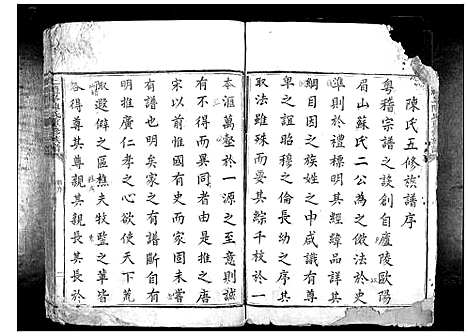 陳氏五修族譜序
粵稽宗譜之談創自廬陵歐陽
眉山蘇氏二公為之倣法於史
準則於禮標明其經緯品詳其
綱目因之族姓之中咸識有尊
卑之誼昭穆之倫長幼之序焉
取法雖殊而要其綜千枝於一
本滙萬壑於一源之至意則誠
有不得而異同者由是以推之唐
宋以前有史而家國未嘗
有譜也明矣家之有譜斷自有
明推廣仁孝之心欲使天下荒
陬遐僻之區樵夫牧豎之輩皆
各得尊其尊親其親長其長於